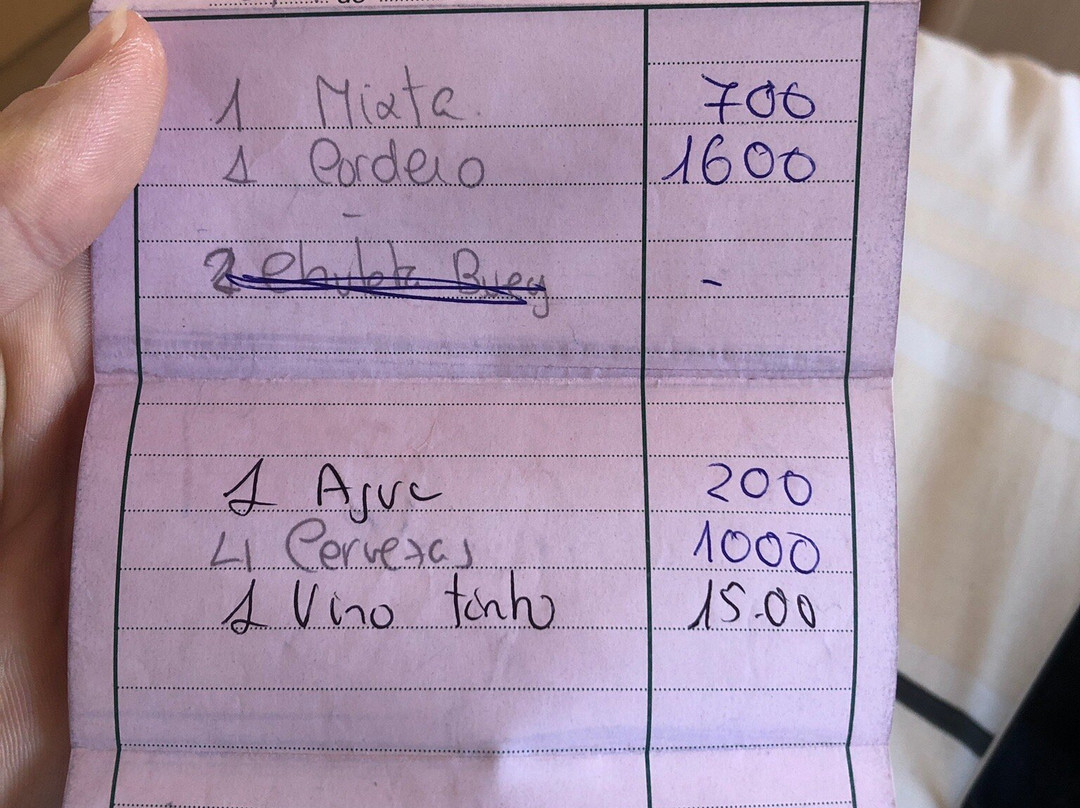 de
1 Mixta. 700
1 Cordero 1600
-
2 Chuleta Buey -
1 Agua 200
4 Cervezas 1000
1 Vino tinto 15.00